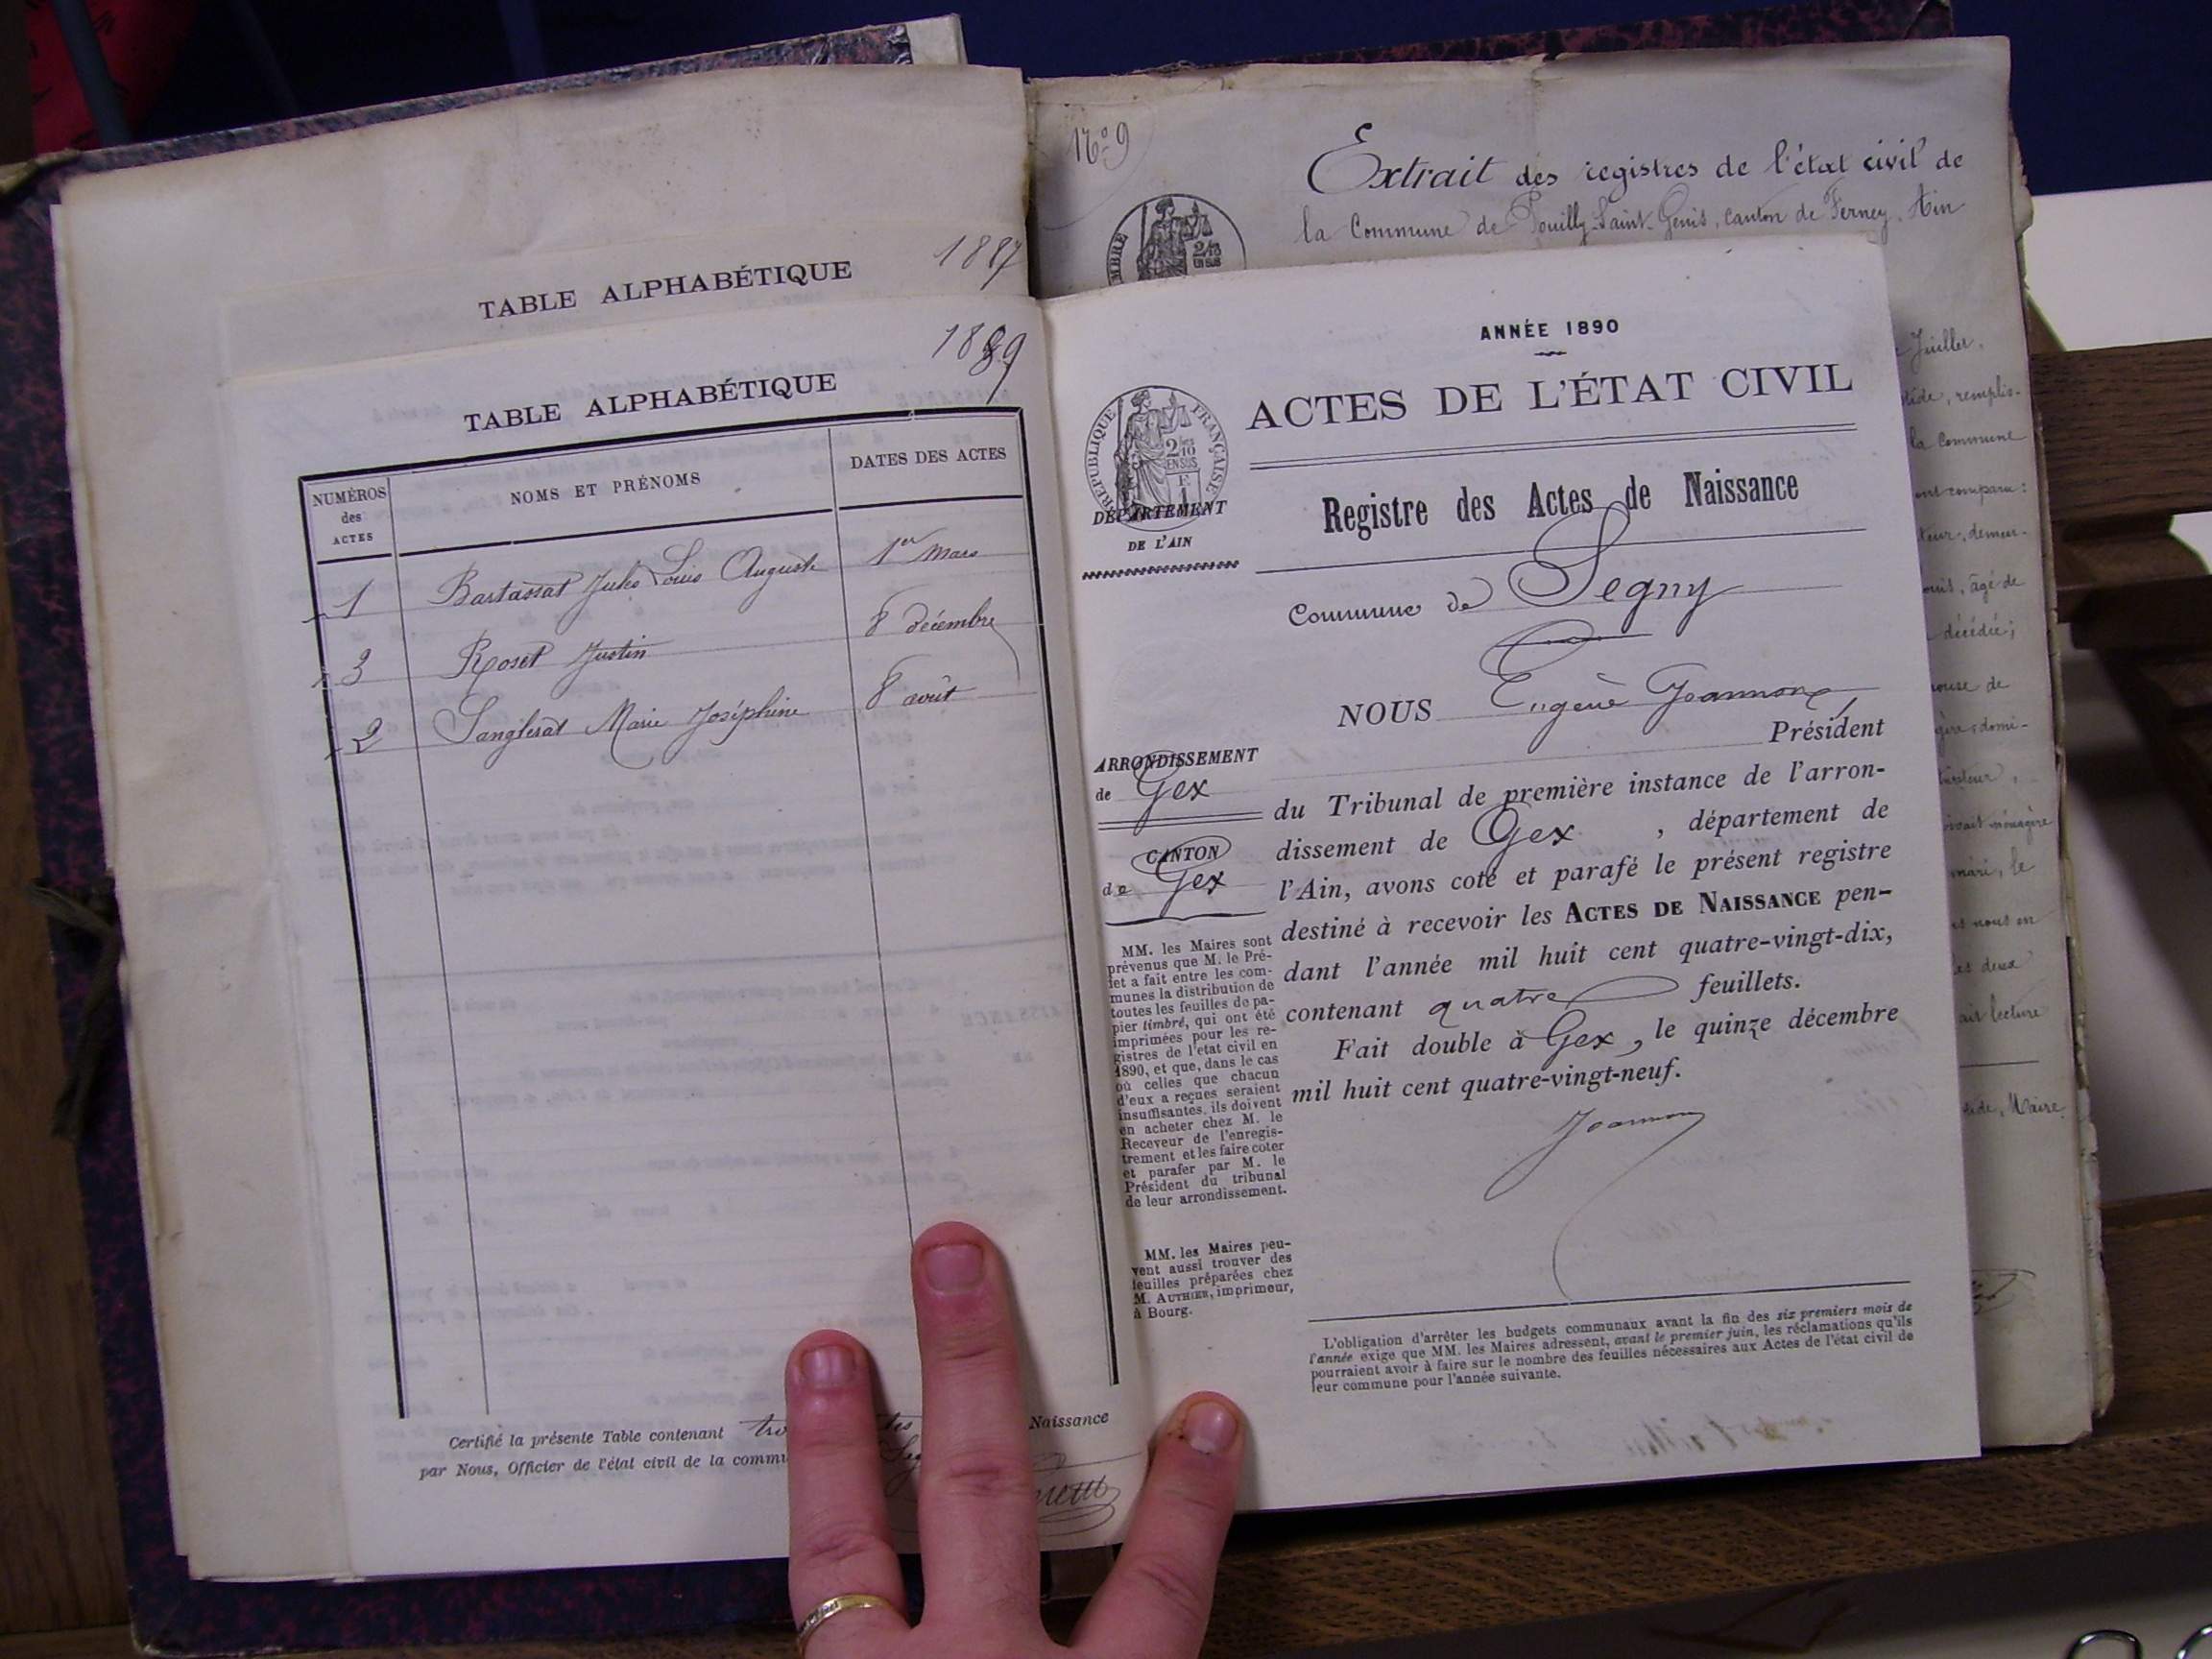 TABLE ALPHABÉTIQUE
1887
TABLE ALPHABÉTIQUE
1889
NUMÉROS
des
ACTES
NOMS ET PRÉNOMS
DATES DES ACTES
1 Bartassat Jules Louis Auguste 1er Mars
3 Roset Justin 8 décembre
2 Sanglerat Marie Joséphine 8 août
Certifié la présente Table contenant
Naissance
par Nous, Officier de l'état civil de la
No 9
Extrait des registres de l'état civil de
la Commune de Pouilly-Saint-Genis, canton de Ferney, Ain
2/10
EN SUS
ANNÉE 1890
ACTES DE L'ÉTAT CIVIL
RÉPUBLIQUE FRANÇAISE
2/10
EN SUS
DÉPARTEMENT
DE L'AIN
Registre des Actes de Naissance
Commune de Segny
NOUS Eugène
Président
ARRONDISSEMENT
de Gex
CANTON
de Gex
du Tribunal de première instance de l'arron-
dissement de Gex , département de
l'Ain, avons coté et parafé le présent registre
destiné à recevoir les ACTES DE NAISSANCE pen-
dant l'année mil huit cent quatre-vingt-dix,
contenant quatre feuillets.
Fait double à Gex, le quinze décembre
mil huit cent quatre-vingt-neuf.
MM. les Maires sont
prévenus que M. le Pré-
fet a fait entre les com-
munes la distribution de
toutes les feuilles de pa-
pier timbré, qui ont été
imprimées pour les re-
gistres de l'état civil en
1890, et que, dans le cas
où celles que chacun
d'eux a reçues seraient
insuffisantes, ils doivent
en acheter chez M. le
Receveur de l'enregis-
trement et les faire coter
et parafer par M. le
Président du tribunal
de leur arrondissement.
MM. les Maires peu-
vent aussi trouver des
feuilles préparées chez
M. AUTHIER, imprimeur,
à Bourg.
L'obligation d'arrêter les budgets communaux avant la fin des six premiers mois de
l'année exige que MM. les Maires adressent, avant le premier juin, les réclamations qu'ils
pourraient avoir à faire sur le nombre des feuilles nécessaires aux Actes de l'état civil de
leur commune pour l'année suivante.
Juillet,
remplis-
la Commune
ont comparu:
demeu-
âgé de
décédée;
épouse de
domi-
ménagère
mari, le
nous en
les deux
lecture
Maire